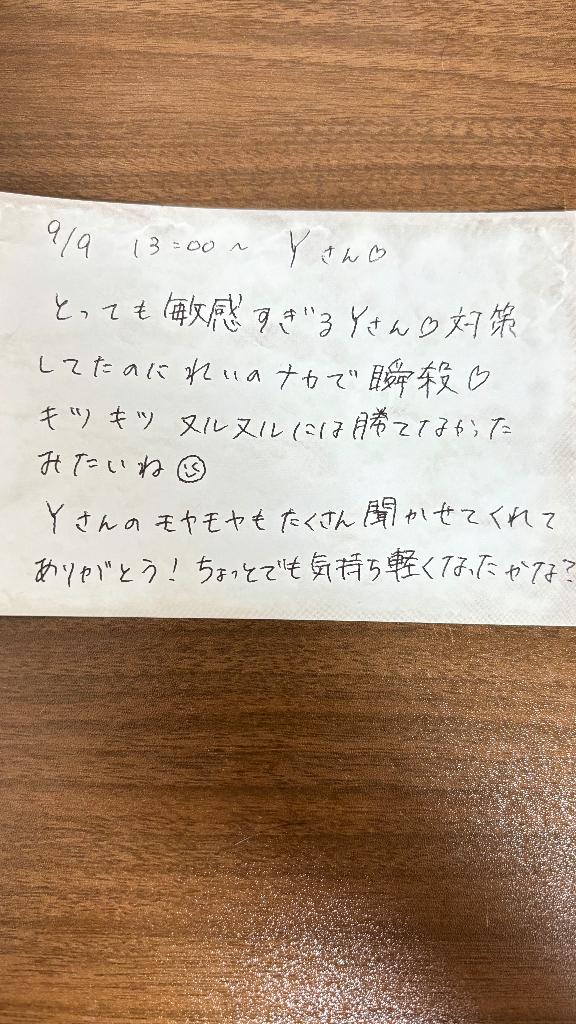 9/9 13:00～ Yさん♡
とっても敏感すぎるYさん♡対策
してたのにれいのナカで瞬殺♡
キツキツ ヌルヌルには勝てなかった
みたいね☺
Yさんのモヤモヤもたくさん聞かせてくれて
ありがとう！ちょっとでも気持ち軽くなったかな？